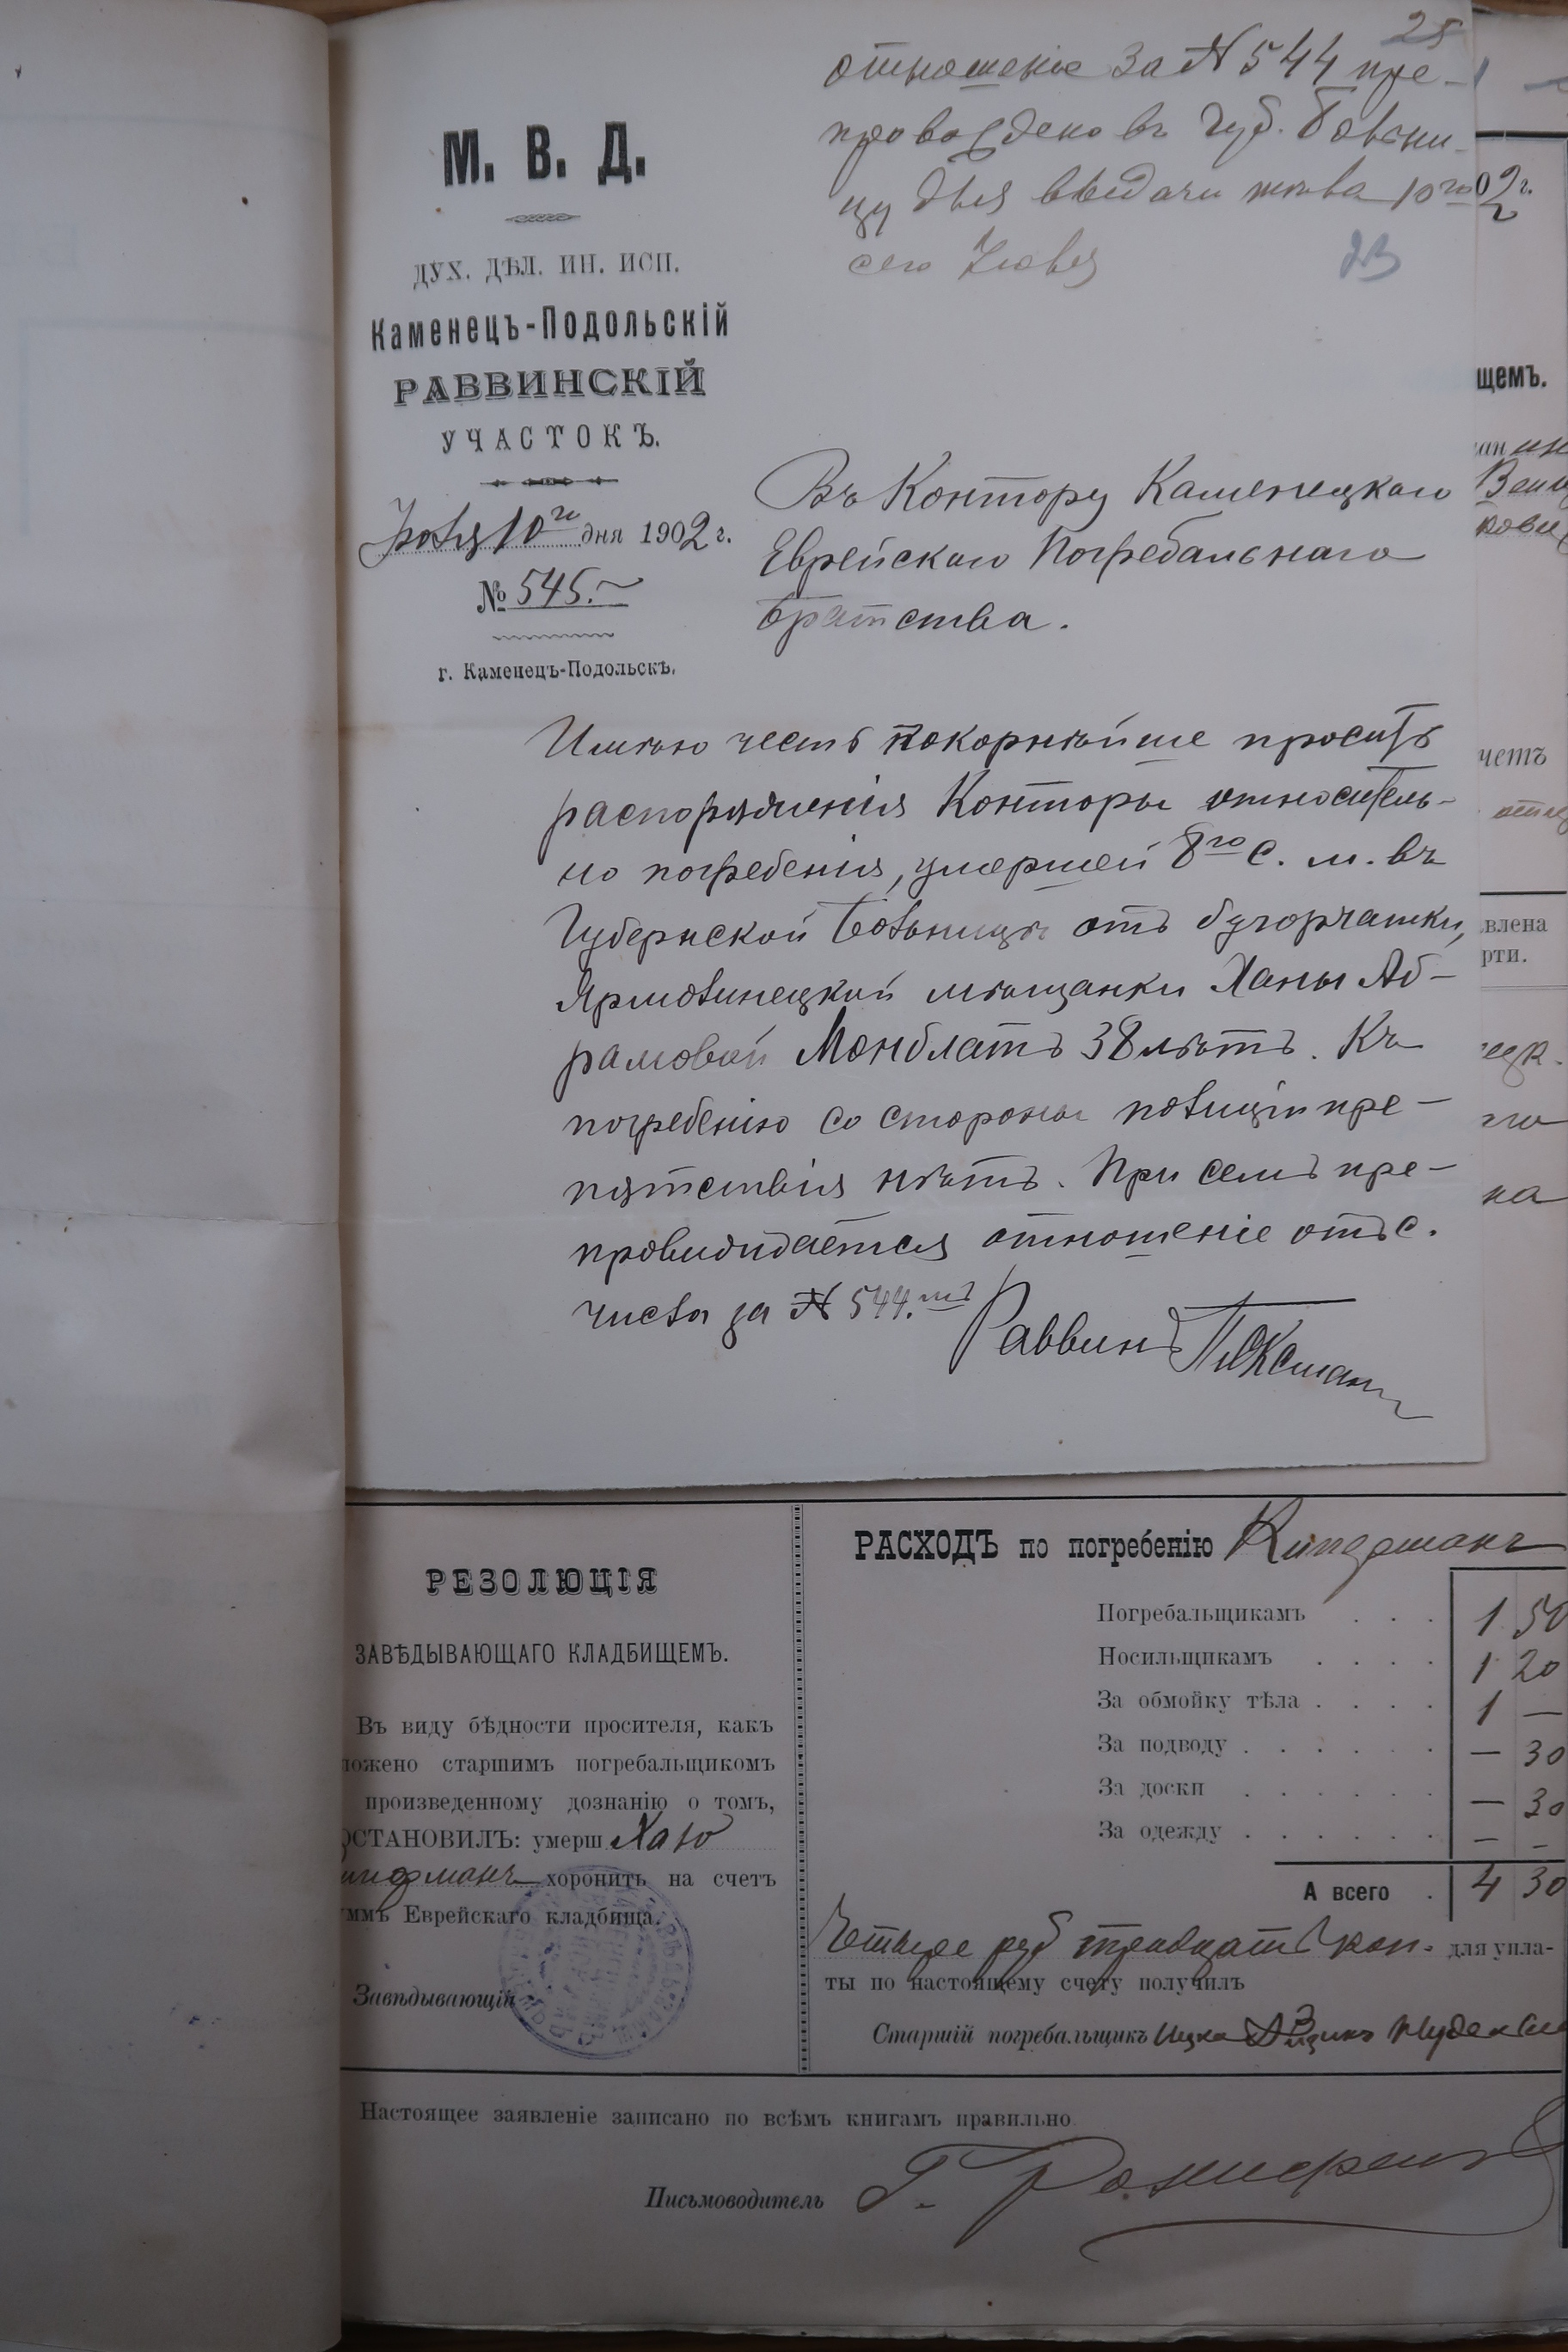 25
отношеніе за № 544 пре-
провождено въ Губ. Больни-
цу для выдачи тѣла 10го
сего Іюля
23
М. В. Д.
ДУХ. ДѢЛ. ИН. ИСП.
Каменецъ-Подольскій
РАВВИНСКІЙ
УЧАСТОКЪ.
Іюля 10го дня 1902 г.
№ 545.
г. Каменецъ-Подольскъ.
Въ Контору Каменецкаго
Еврейскаго Погребальнаго
братства.
Имѣю честь покорнѣйше просить
распоряженія Конторы относитель-
но погребенія, умершей 8го с. м. въ
Губернской больницѣ отъ бугорчатки,
Ярмолинецкой мѣщанки Ханы Аб-
рамовой Монблатъ 38 лѣтъ. Къ
погребенію со стороны полиціи пре-
пятствія нѣтъ. При семъ пре-
провождается отношеніе отъ с.
числа за № 544.
Раввинъ
02 г.
щемъ.
четъ
влена
рти.
на
РЕЗОЛЮЦІЯ
ЗАВѢДЫВАЮЩАГО КЛАДБИЩЕМЪ.
Въ виду бѣдности просителя, какъ
ложено старшимъ погребальщикомъ
произведенному дознанію о томъ,
ОСТАНОВИЛЪ: умерш Хаю
хоронить на счетъ
уммъ Еврейскаго кладбища.
Завѣдывающій
РАСХОДЪ по погребенію
Погребальщикамъ . . . 1 50
Носильщикамъ . . . . 1 20
За обмойку тѣла . . . . 1 —
За подводу . . . . . . — 30
За доски . . . . . . — 30
За одежду . . . . . . — -
А всего . 4 30
Четыре руб тридцать коп. для упла-
ты по настоящему счету получилъ
Старшій погребальщикъ Ицко
Настоящее заявленіе записано по всѣмъ книгамъ правильно
Письмоводитель Г.